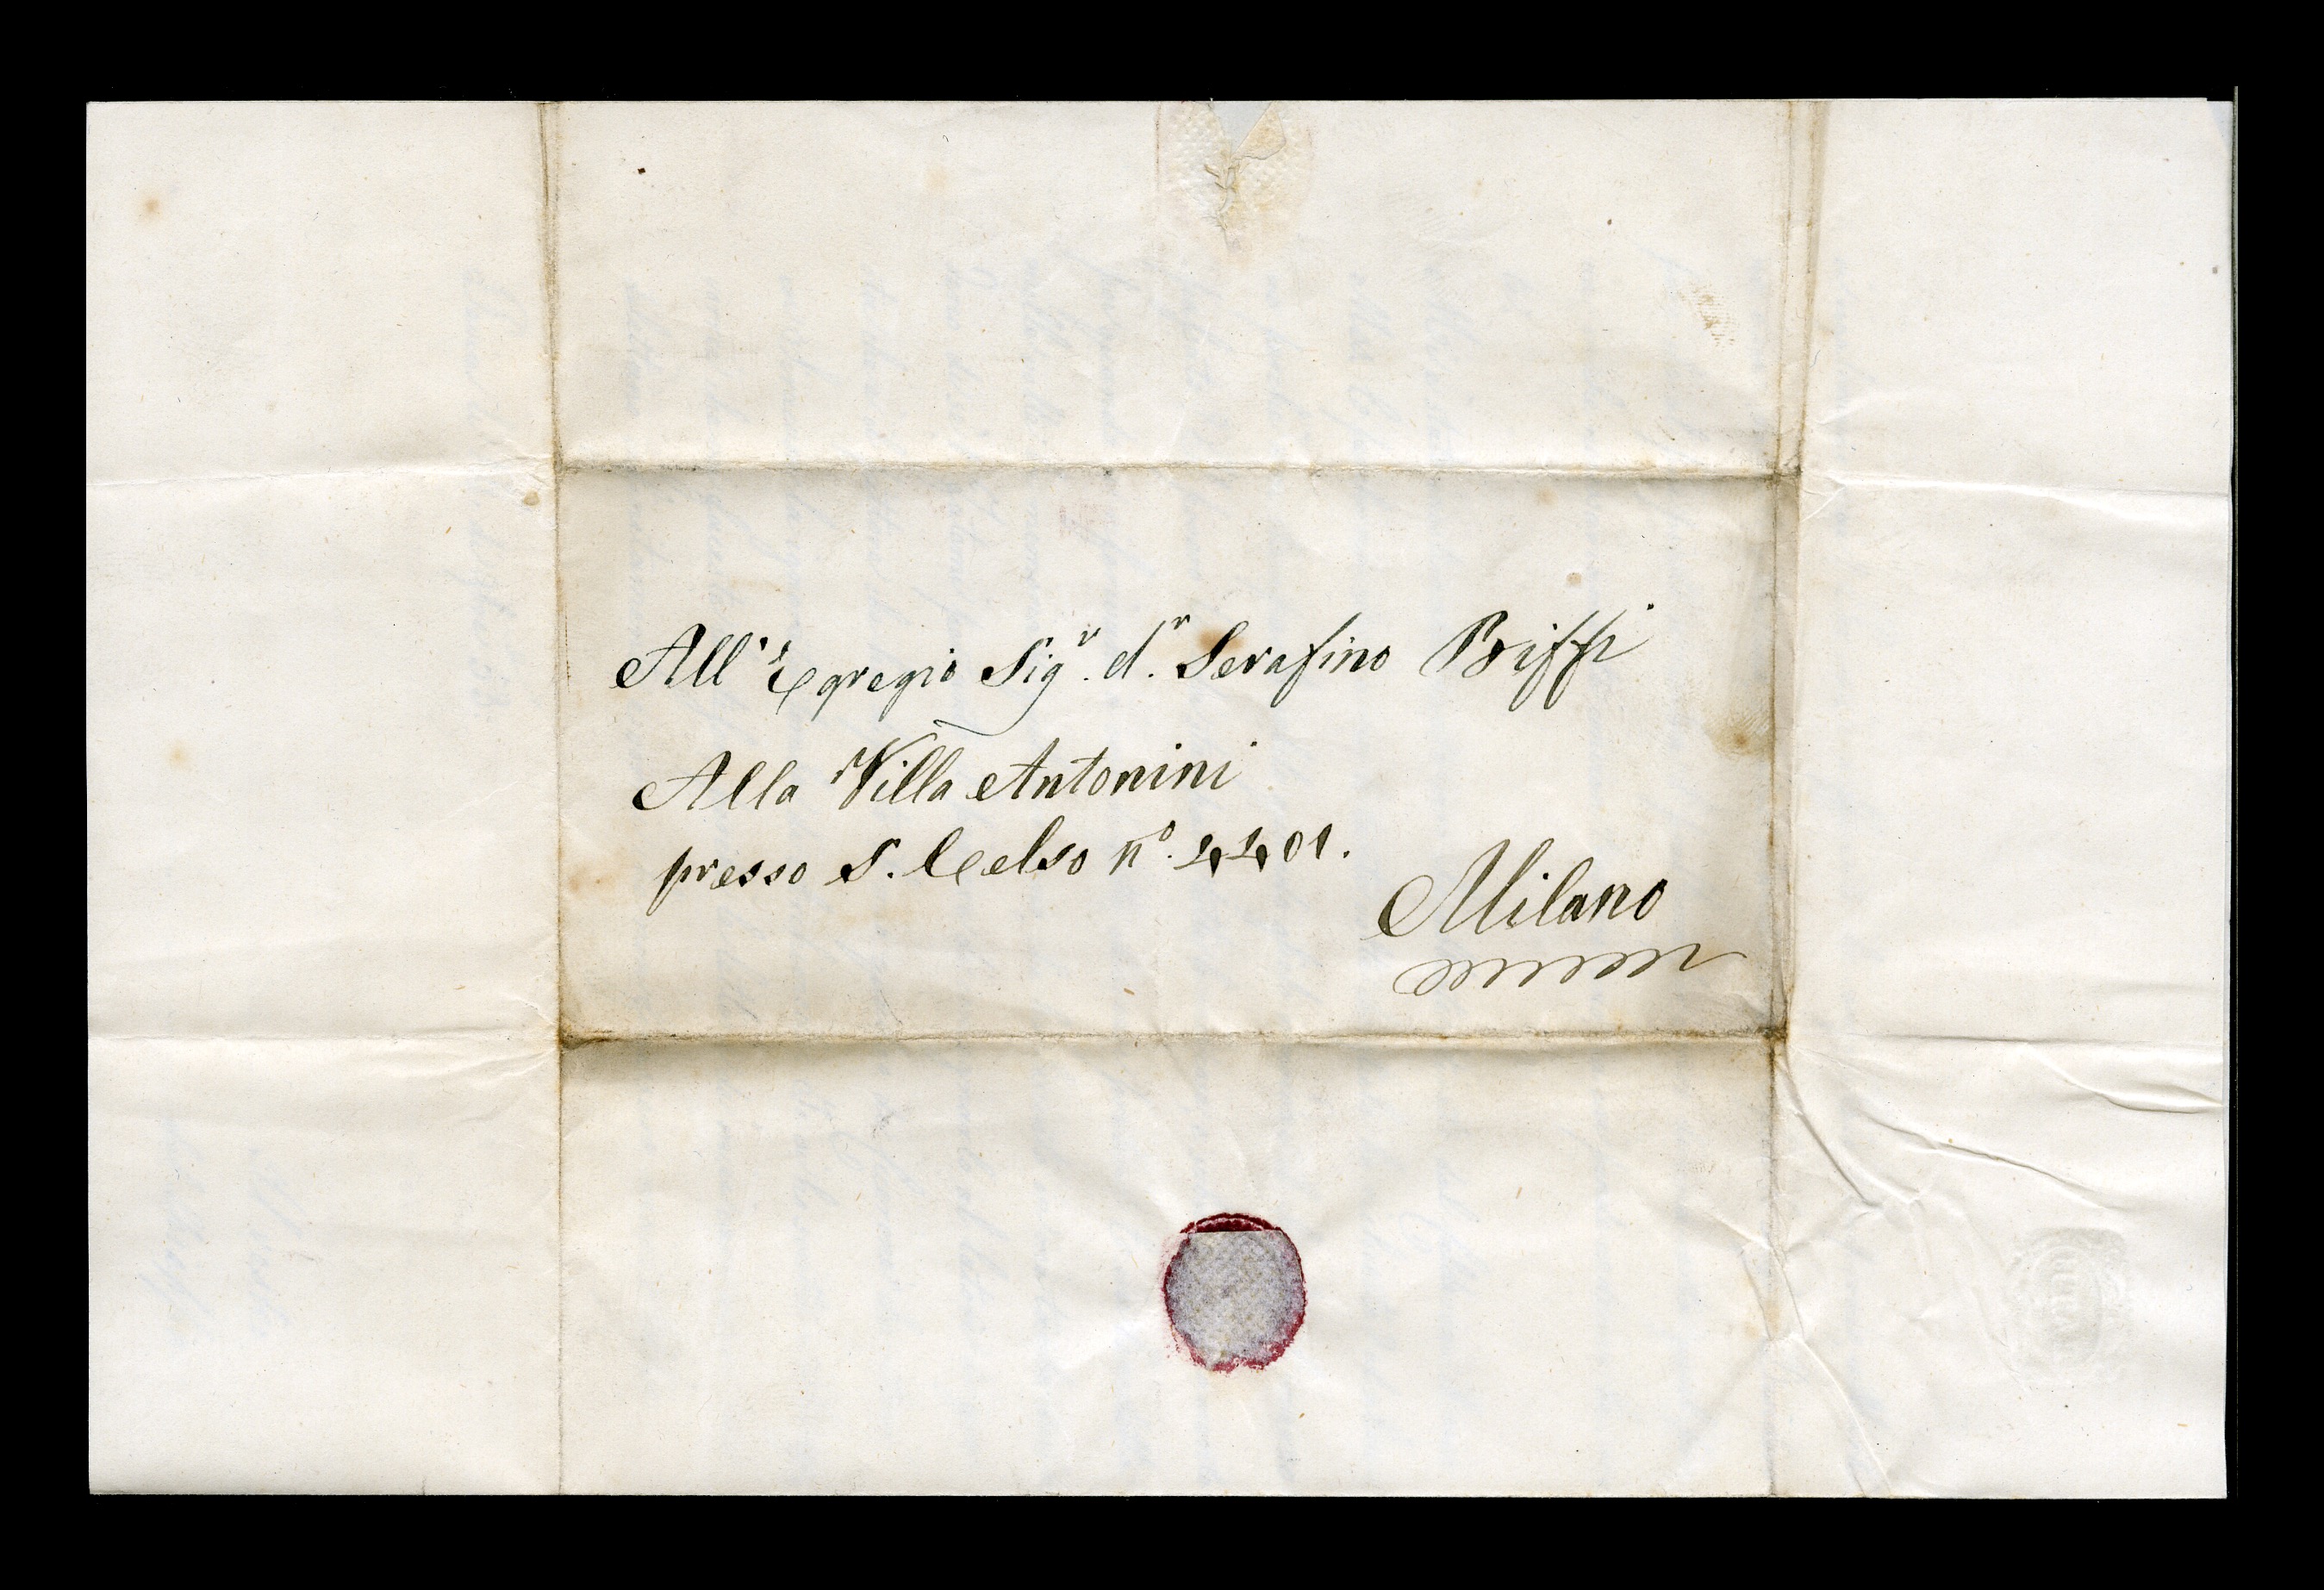 All' Egregio Sigr. dr. Serafino Biffi
Alla Villa Antonini
presso S. Celso no. 4401.
Milano